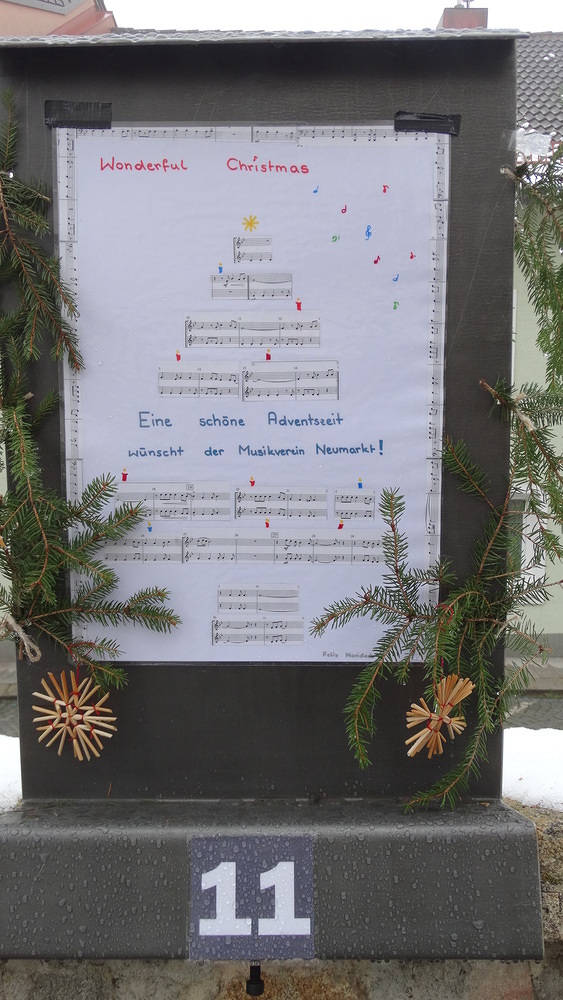 Wonderful Christmas
Eine schöne Adventszeit
wünscht der Musikverein Neumarkt!
Felix
11